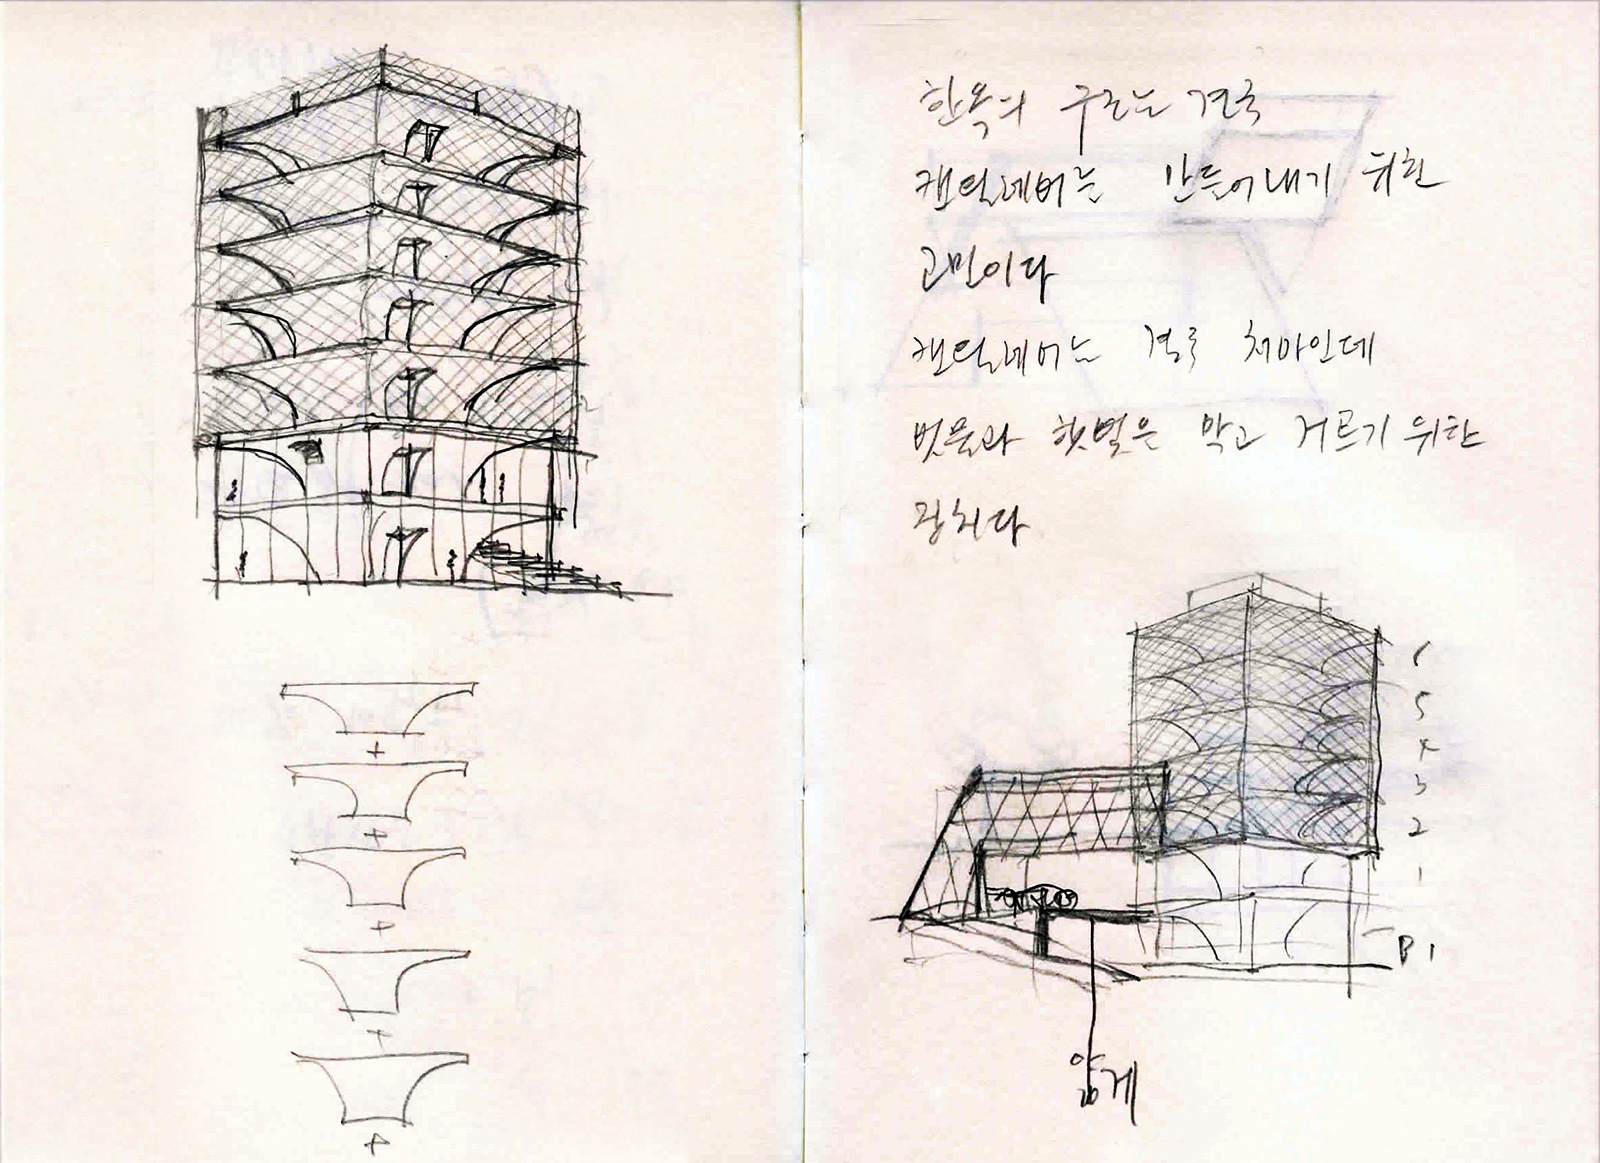 한옥의 구조는 결국
캔틸레버는 만들어내기 위한
고민이다
캔틸레버는 결국 처마인데
빗물과 햇볕은 막고 거르기 위한
장치다
6
5
4
3
2
1
B1
얇게
+
+
+
+
+